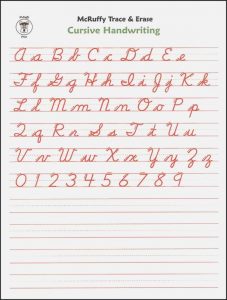 McRuffy Trace & Erase
Cursive Handwriting
A a B b C c D d E e
F f G g H h I i J j K k
L l M m N n O o P p
Q q R r S s T t U u
V v W w X x Y y Z z
0 1 2 3 4 5 6 7 8 9